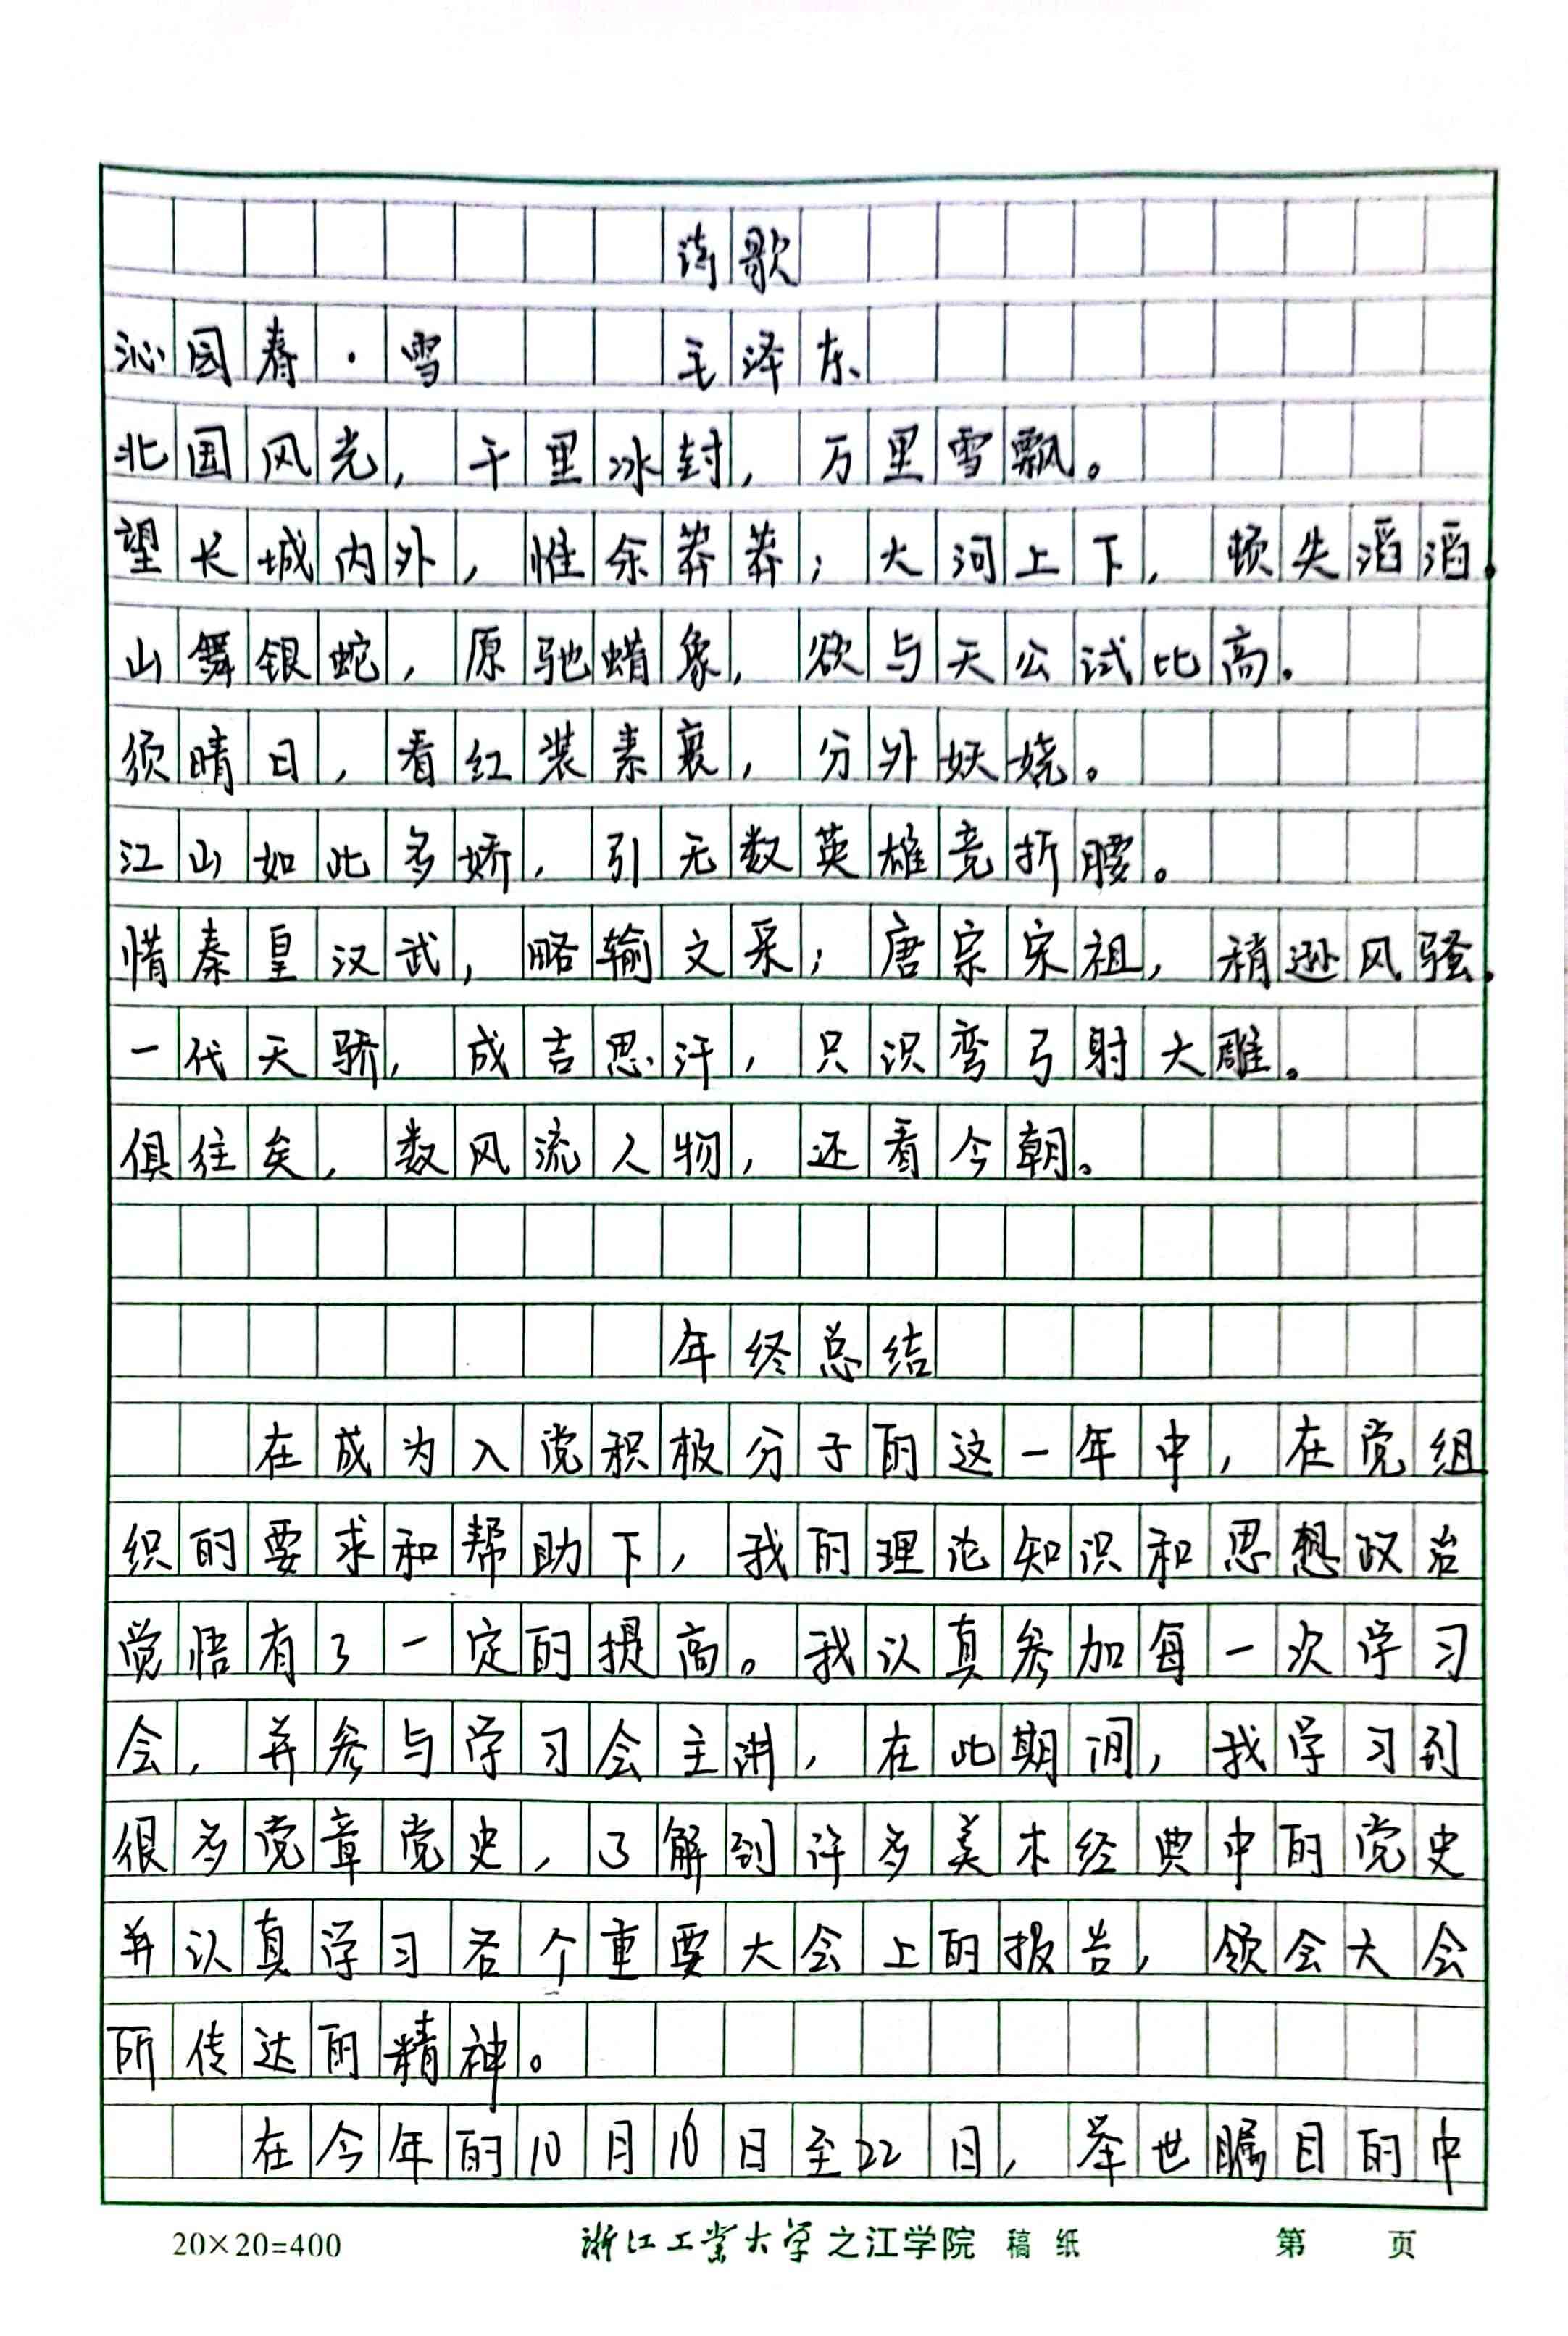 诗歌
沁园春·雪 毛泽东
北国风光,千里冰封,万里雪飘。
望长城内外,惟余莽莽;大河上下,顿失滔滔。
山舞银蛇,原驰蜡象,欲与天公试比高。
须晴日,看红装素裹,分外妖娆。
江山如此多娇,引无数英雄竞折腰。
惜秦皇汉武,略输文采;唐宗宋祖,稍逊风骚。
一代天骄,成吉思汗,只识弯弓射大雕。
俱往矣,数风流人物,还看今朝。
年终总结
在成为入党积极分子的这一年中,在党组
织的要求和帮助下,我的理论知识和思想政治
觉悟有了一定的提高。我认真参加每一次学习
会,并参与学习会主讲,在此期间,我学习到
很多党章党史,了解到许多美术经典中的党史
并认真学习各个重要大会上的报告,领会大会
所传达的精神。
在今年的10月16日至22日,举世瞩目的中
20×20=400 浙江工业大学之江学院 稿纸 第 页